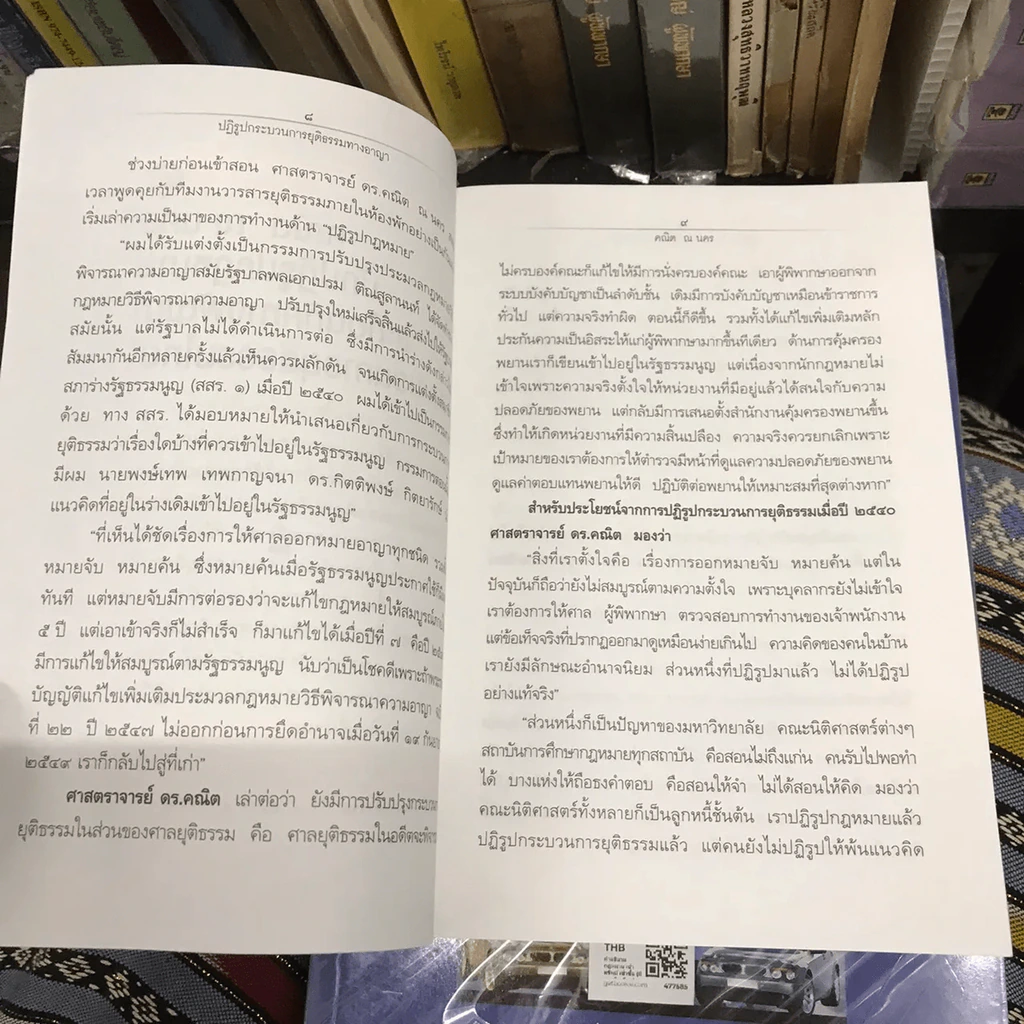 ๘
ปฏิรูปกระบวนการยุติธรรมทางอาญา
ช่วงบ่ายก่อนเข้าสอน ศาสตราจารย์ ดร.คณิต ณ นคร
เวลาพูดคุยกับทีมงานวารสารยุติธรรมภายในห้องพักอย่างเป็น
เริ่มเล่าความเป็นมาของการทำงานด้าน "ปฏิรูปกฎหมาย"
"ผมได้รับแต่งตั้งเป็นกรรมการปรับปรุงประมวลกฎหมาย
พิจารณาความอาญาสมัยรัฐบาลพลเอกเปรม ติณสูลานนท์
กฎหมายวิธีพิจารณาความอาญา ปรับปรุงใหม่เสร็จสิ้นแล้วส่งไปให้
สมัยนั้น แต่รัฐบาลไม่ได้ดำเนินการต่อ ซึ่งมีการนำร่าง
สัมมนากันอีกหลายครั้งแล้วเห็นควรผลักดัน จนเกิดการแต่งตั้ง
สภาร่างรัฐธรรมนูญ (สสร. ๑) เมื่อปี ๒๕๔๐ ผมได้เข้าไปเป็น
ด้วย ทาง สสร. ได้มอบหมายให้นำเสนอเกี่ยวกับการกระบวน
ยุติธรรมว่าเรื่องใดบ้างที่ควรเข้าไปอยู่ในรัฐธรรมนูญ กรรมการ
มีผม นายพงษ์เทพ เทพกาญจนา ดร.กิตติพงษ์ กิตยารักษ์
แนวคิดที่อยู่ในร่างเดิมเข้าไปอยู่ในรัฐธรรมนูญ"
"ที่เห็นได้ชัดเรื่องการให้ศาลออกหมายอาญาทุกชนิด
หมายจับ หมายค้น ซึ่งหมายค้นเมื่อรัฐธรรมนูญประกาศใช้
ทันที แต่หมายจับมีการต่อรองว่าจะแก้ไขกฎหมายให้สมบูรณ์
๕ ปี แต่เอาเข้าจริงก็ไม่สำเร็จ ก็มาแก้ไขได้เมื่อปีที่ ๗ คือปี
มีการแก้ไขให้สมบูรณ์ตามรัฐธรรมนูญ นับว่าเป็นโชคดีเพราะถ้า
บัญญัติแก้ไขเพิ่มเติมประมวลกฎหมายวิธีพิจารณาความอาญา
ที่ ๒๒ ปี ๒๕๔๗ ไม่ออกก่อนการยึดอำนาจเมื่อวันที่ ๑๙
๒๕๔๙ เราก็กลับไปสู่ที่เก่า"
ศาสตราจารย์ ดร.คณิต เล่าต่อว่า ยังมีการปรับปรุงกระบวน
ยุติธรรมในส่วนของศาลยุติธรรม คือ ศาลยุติธรรมในอดีตจะ
๙
คณิต ณ นคร
ไม่ครบองค์คณะก็แก้ไขให้มีการนั่งครบองค์คณะ เอาผู้พิพากษาออกจาก
ระบบบังคับบัญชาเป็นลำดับชั้น เดิมมีการบังคับบัญชาเหมือนข้าราชการ
ทั่วไป แต่ความจริงทำผิด ตอนนี้ก็ดีขึ้น รวมทั้งได้แก้ไขเพิ่มเติมหลัก
ประกันความเป็นอิสระให้แก่ผู้พิพากษามากขึ้นทีเดียว ด้านการคุ้มครอง
พยานเราก็เขียนเข้าไปอยู่ในรัฐธรรมนูญ แต่เนื่องจากนักกฎหมายไม่
เข้าใจเพราะความจริงตั้งใจให้หน่วยงานที่มีอยู่แล้วได้สนใจกับความ
ปลอดภัยของพยาน แต่กลับมีการเสนอตั้งสำนักงานคุ้มครองพยานขึ้น
ซึ่งทำให้เกิดหน่วยงานที่มีความสิ้นเปลือง ความจริงควรยกเลิกเพราะ
เป้าหมายของเราต้องการให้ตำรวจมีหน้าที่ดูแลความปลอดภัยของพยาน
ดูแลค่าตอบแทนพยานให้ดี ปฏิบัติต่อพยานให้เหมาะสมที่สุดต่างหาก"
สำหรับประโยชน์จากการปฏิรูปกระบวนการยุติธรรมเมื่อปี ๒๕๔๐
ศาสตราจารย์ ดร.คณิต มองว่า
"สิ่งที่เราตั้งใจคือ เรื่องการออกหมายจับ หมายค้น แต่ใน
ปัจจุบันก็ถือว่ายังไม่สมบูรณ์ตามความตั้งใจ เพราะบุคลากรยังไม่เข้าใจ
เราต้องการให้ศาล ผู้พิพากษา ตรวจสอบการทำงานของเจ้าพนักงาน
แต่ข้อเท็จจริงที่ปรากฏออกมาดูเหมือนง่ายเกินไป ความคิดของคนในบ้าน
เรายังมีลักษณะอำนาจนิยม ส่วนหนึ่งที่ปฏิรูปมาแล้ว ไม่ได้ปฏิรูป
อย่างแท้จริง"
"ส่วนหนึ่งก็เป็นปัญหาของมหาวิทยาลัย คณะนิติศาสตร์ต่างๆ
สถาบันการศึกษากฎหมายทุกสถาบัน คือสอนไม่ถึงแก่น คนรับไปพอทำ
ได้ บางแห่งให้ถือธงคำตอบ คือสอนให้จำ ไม่ได้สอนให้คิด มองว่า
คณะนิติศาสตร์ทั้งหลายก็เป็นลูกหนี้ชั้นต้น เราปฏิรูปกฎหมายแล้ว
ปฏิรูปกระบวนการยุติธรรมแล้ว แต่คนยังไม่ปฏิรูปให้พ้นแนวคิด
THB
477686